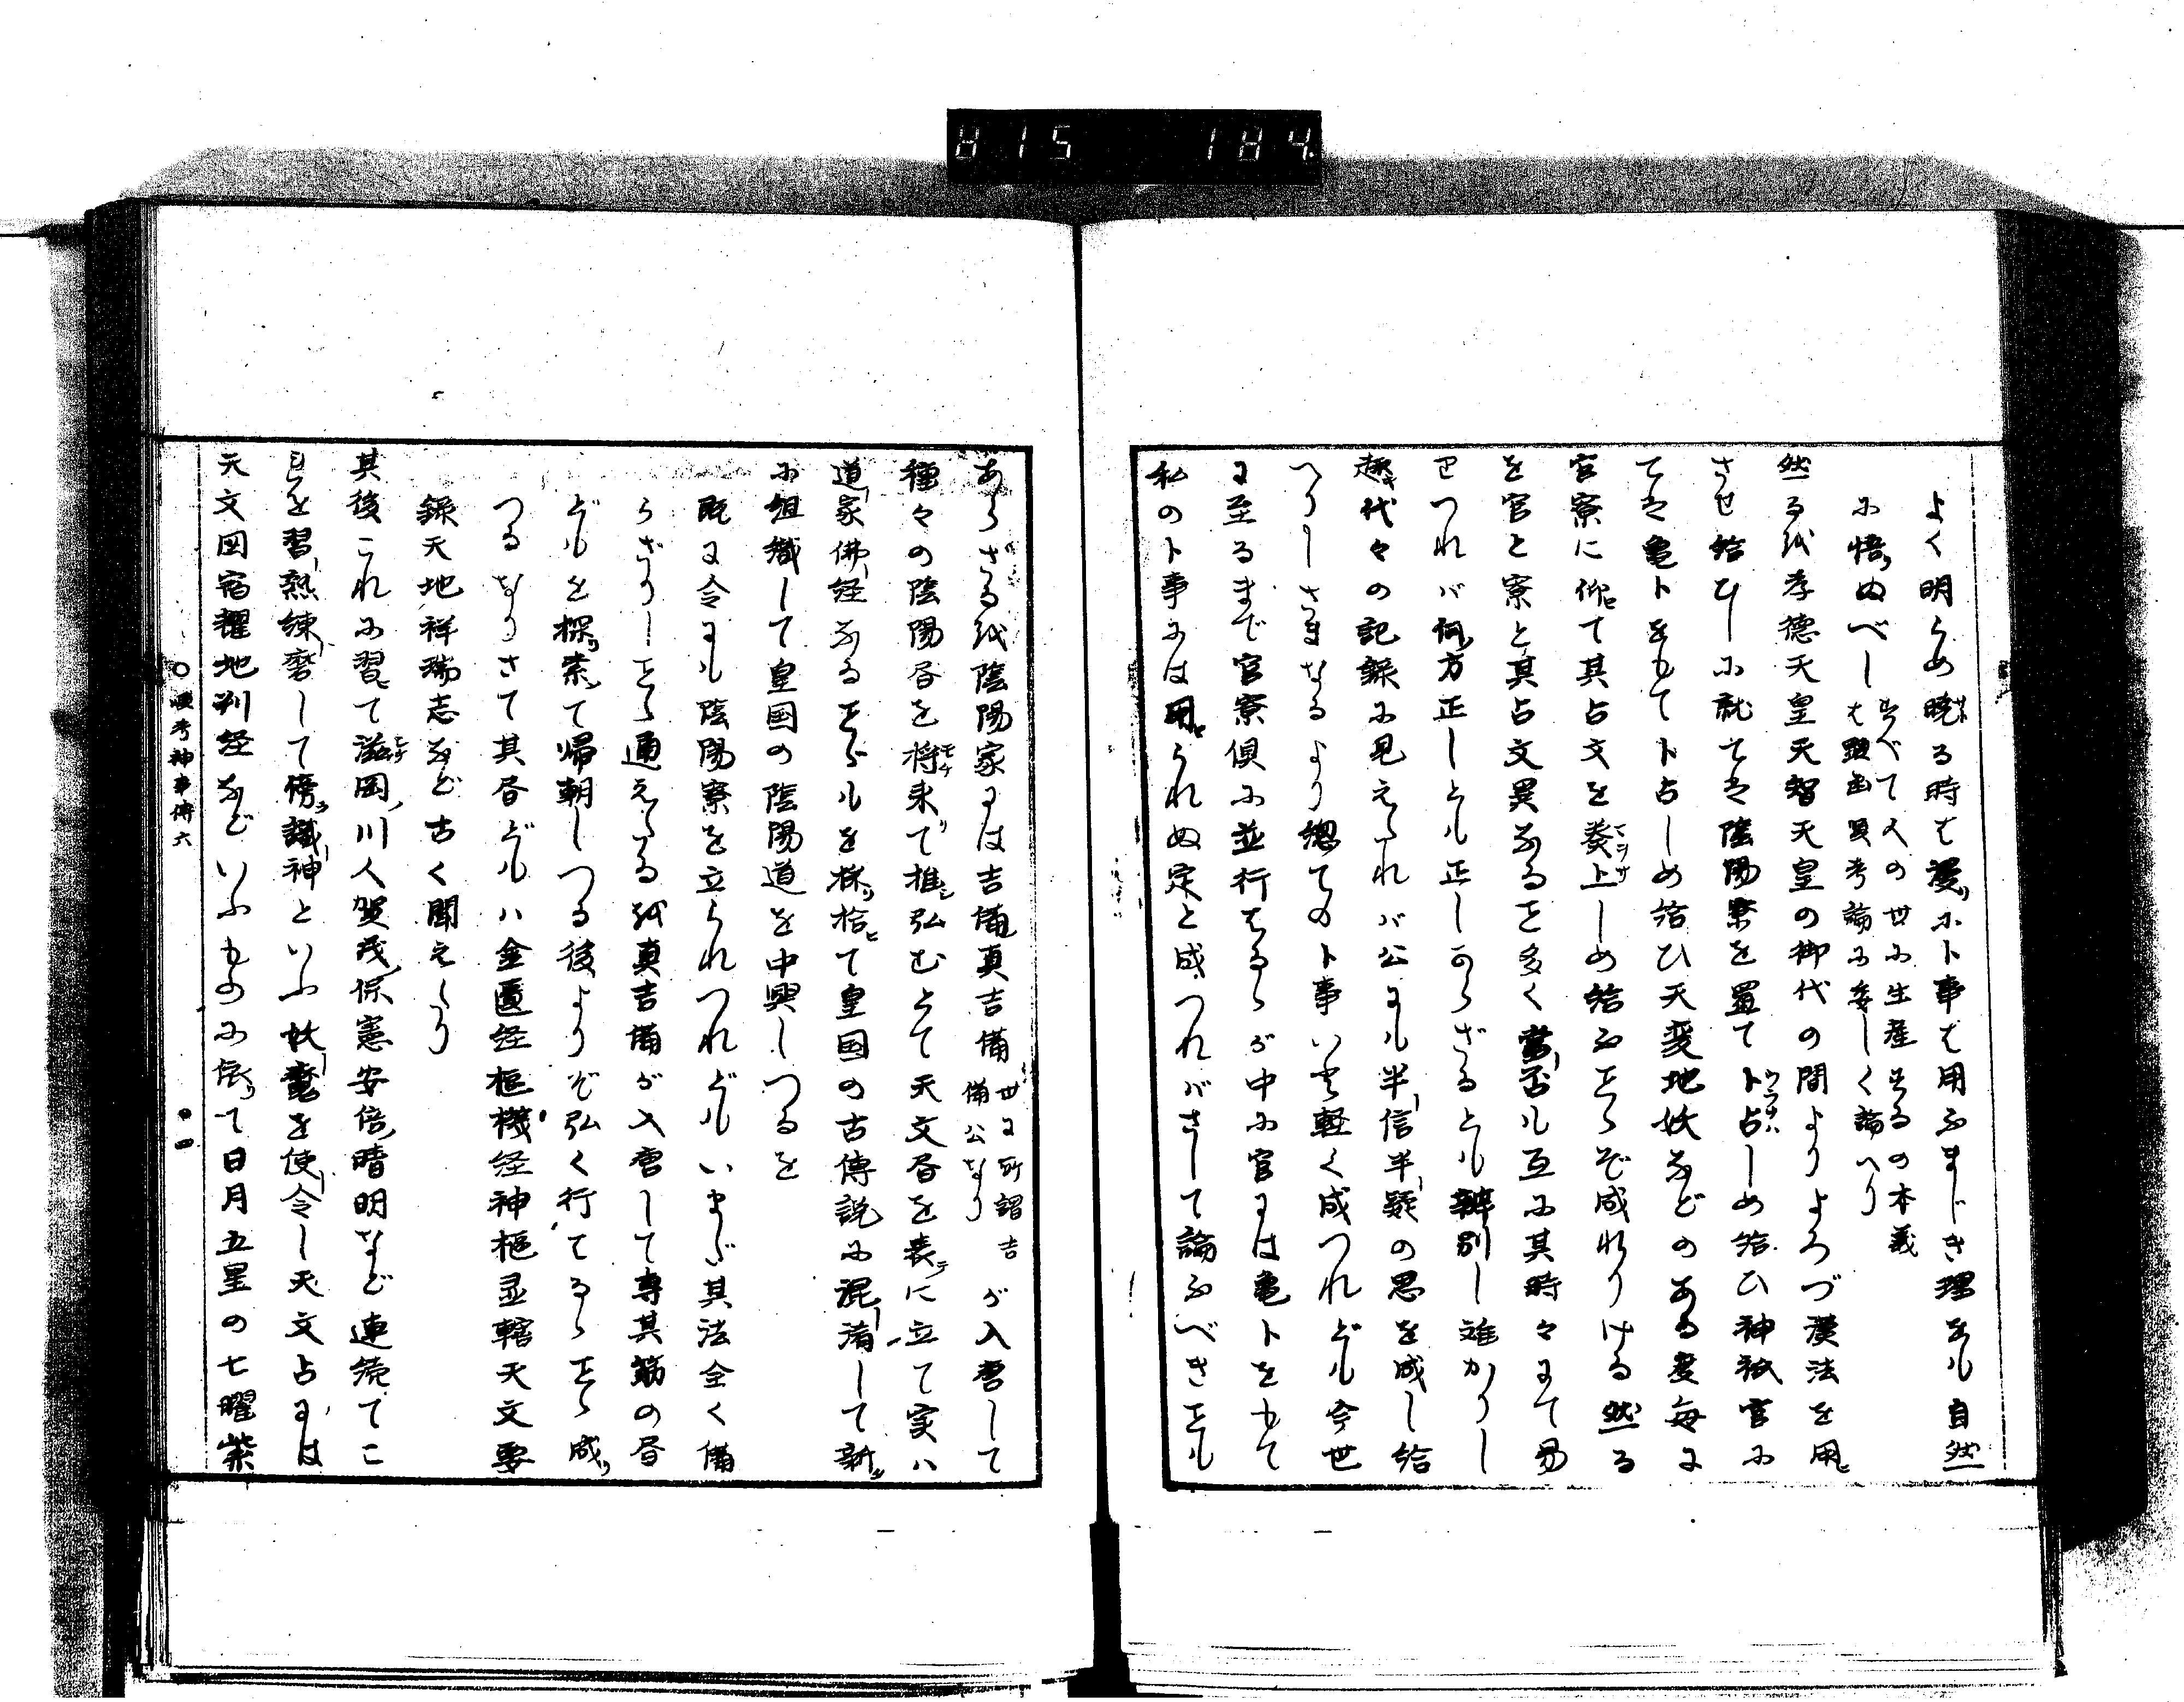 815 184
よく明らめ暁る時は漫に卜事は用ふまじき理をも自然
に悟ぬべし すべて人の世に生産るの本義
は顕幽順考論に委しく論へり
然るを孝徳天皇天智天皇の御代の間よりよろづ漢法を用
させ給ひしに就ては陰陽寮を置て卜占しめ給ひ神祇官に
ては亀卜をもて卜占しめ給ひ天変地妖などのある度毎に
官寮に仰て其占文を奏上しめ給ふことゝぞ成れりける然る
を官と寮と其占文異なること多く當否も互に其時々にて易
つれバ何方正しとも正しからざるとも辨別し難かりし
趣代々の記録に見えたれバ公にも半信半疑の思を成し給
へりしさまなるより総ての卜事いと軽く成つれども今世
に至るまで官寮倶に並行はるゝが中に官には亀卜をもて
私の卜事には用られぬ定と成つれバさして論ふべきことも
あらざるを陰陽家には吉備真吉備 世に所謂吉
備公なり が入唐して
種々の陰陽書を将来て推弘むとて天文書を表に立て実ハ
道家佛経なることゞもを採拾て皇国の古傳説に混淆して新
に組織して皇国の陰陽道を中興しつるを
既に令にも陰陽寮を立られつれどもいまだ其法全く備
らざりしことゝ通えたるを真吉備が入唐して専其筋の書
どもを探索て帰朝しつる後よりぞ弘く行てるゝことゝ成
つるなりさて其書どもハ金匱経枢機経神枢霊轄天文要
録天地祥瑞志など古く聞えたり
其後これに習て滋岡川人賀茂保憲安倍晴明など連続てこ
れを習熟練磨して傍識神といふ妖魔を使令し天文占には
天文図宿曜地判経などいふものに依て日月五星の七曜紫
○順考神事傳六